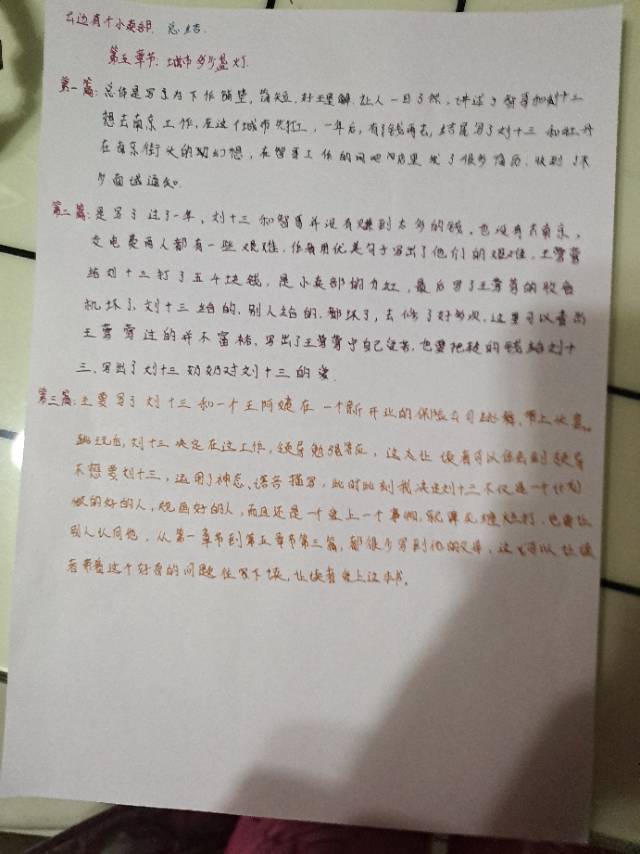 云边有个小卖部. 总结.
第五章节: 城市多少盏灯.
第一篇: 总体是写了为下作铺垫, 简短, 好理解. 让人一目了然, 讲述了智哥和刘十三
想去南京工作, 在这个城市先打工, 一年后, 有了钱再去, 结尾写了刘十三和牡丹
在南京街头的幻想, 在智哥工作的网吧 里 发了很多简历. 收到了不
少面试通知.
第二篇: 是写了过了一年, 刘十三和智哥并没有赚到太多的钱, 也没有去南京,
交电费两人都有一些艰难. 作者用优美句子写出了他们的艰难. 王莺莺
给刘十三打了五千块钱, 是小卖部的分红, 最后写了王莺莺的收音
机坏了, 刘十三给的, 别人给的, 都坏了, 去修了好多次, 这里可以看出
王莺莺过的并不富裕. 写出了王莺莺宁自己 , 也要把挣的钱给刘十
三, 写出了刘十三奶奶对刘十三的爱.
第三篇: 主要写了刘十三和一个王阿姨在一个新开让的保险公司 , 带上
, 刘十三决定在这工作, 领导勉强答应, 这点让读者可以体会到领导
不想要刘十三, 运用了神态、语言描写, 此时此刻我 刘十三不仅是一个计划
做的好的人, 规画好的人, 而且还是一个爱上一个事物, 就算死缠烂打, 也要让
别人认同他, 从第一章节到第五章节第三篇, 都很少写到他的父母, 这可以让读
者带着这个好奇的问题往写下读, 让读者爱上这本书.